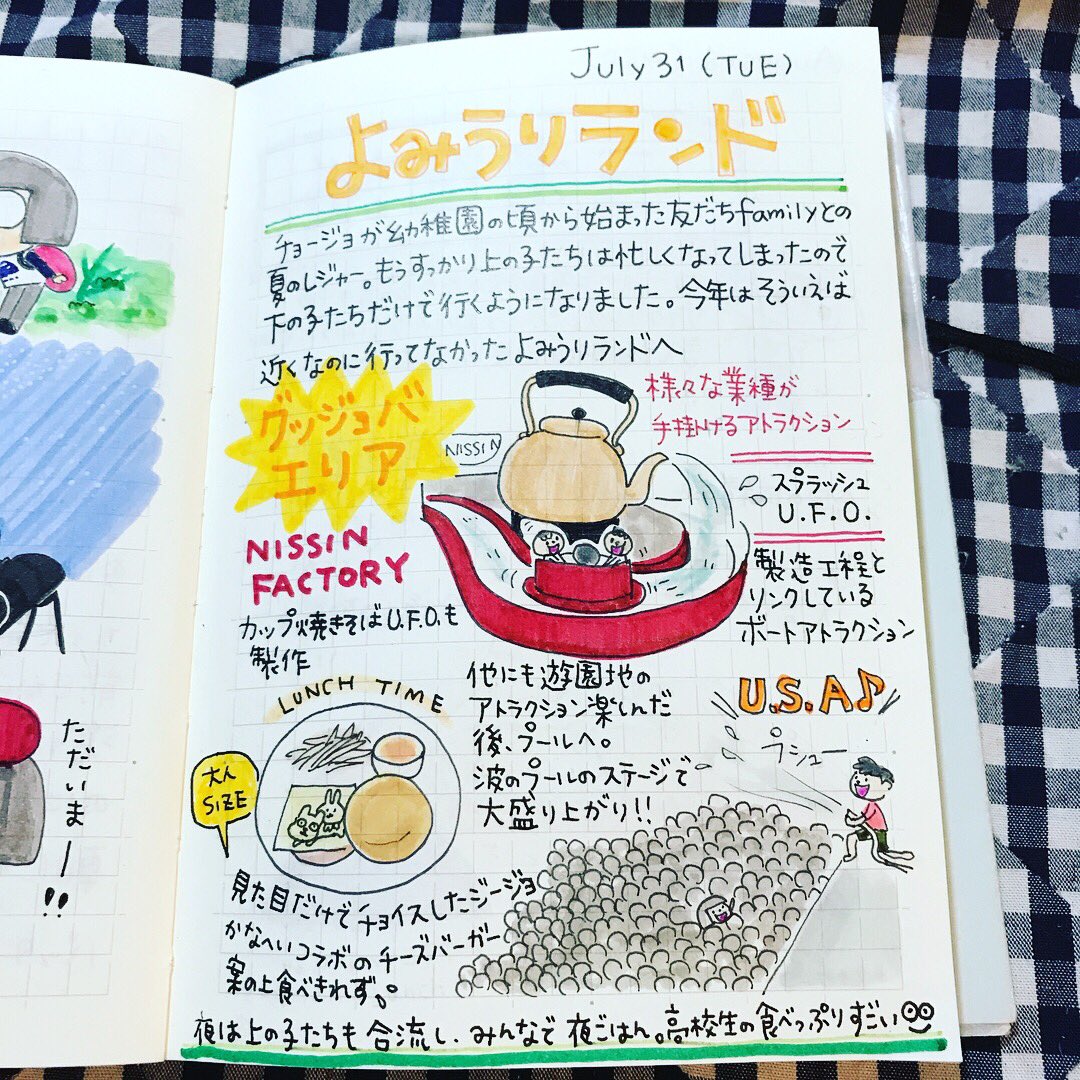 July 31 (TUE)
よみうりランド
チョージョが幼稚園の頃から始まった友だちfamilyとの
夏のレジャー。もうすっかり上の子たちは忙しくなってしまったので
下の子たちだけで行くようになりました。今年はそういえば
近くなのに行ってなかったよみうりランドへ
グッジョバ
エリア
NISSIN
様々な業種が
手掛けるアトラクション
スプラッシュ
U.F.O.
NISSIN
FACTORY
カップ焼きそばU.F.O.も
製作
製造工程と
リンクしている
ボートアトラクション
LUNCH TIME
大人
SIZE
他にも遊園地の
アトラクション楽しんだ
後、プールへ。
波のプールのステージで
大盛り上がり!!
U.S.A♪
プシュー
見た目だけでチョイスしたジージョ
かなへいコラボのチーズバーガー
案の上食べきれず。
夜は上の子たちも合流し、みんなで夜ごはん。高校生の食べっぷりすごい
ただいまー!!